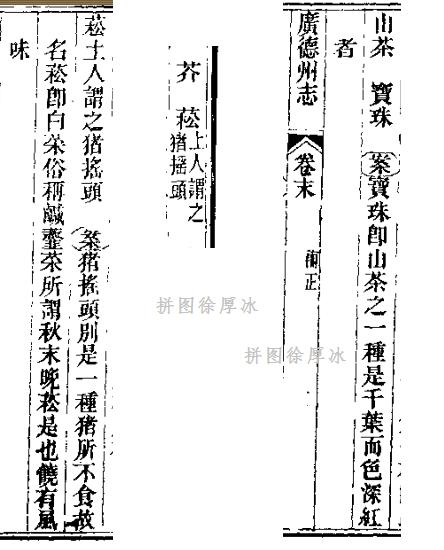 山茶 寶珠 案寶珠卽山茶之一種是千葉而色深紅
者
廣德州志 卷末 補正
芥 菘土人謂之
猪搖頭
菘土人謂之猪搖頭 案猪搖頭別是一種猪所不食故
名菘卽白菜俗稱鹹虀菜所謂秋末晚菘是也饒有風
味
拼图徐厚冰
拼图徐厚冰